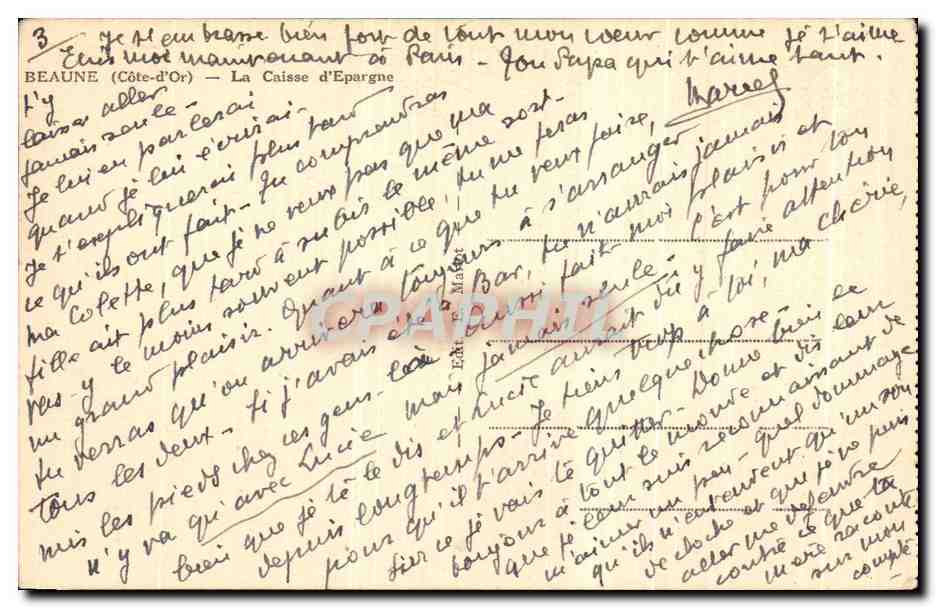 3
Je t'embrasse bien fort de tout mon coeur comme je t'aime
Ecris moi maintenant à Paris - Ton Papa qui t'aime tant.
Marcel
BEAUNE (Côte-d'Or) — La Caisse d'Epargne
t'y
laisser aller
jamais seule -
Je lui en parlerai
quand je lui écrirai -
Je t'expliquerai plus tard
ce qu'ils ont fait - Tu comprendras
ma Colette, que je ne veux pas que ma
fille ait plus tard à subir le même sort -
vas-y le moins souvent possible, tu me feras
un grand plaisir. Quant à ce que tu veux faire,
tu verras qu'on arrivera toujours à s'arranger
tous les deux - Si j'avais été à Bar, tu n'aurais jamais
mis les pieds chez ces gens là aussi fait moi plaisir et
n'y va qu'avec Lucie mais jamais seule - c'est pour ton
bien que je te le dis et Lucie aurait dû y faire attention
depuis longtemps - Je tiens trop à toi, ma chérie,
pour qu'il t'arrive quelque chose -
Sur ce je vais te quitter - Donne bien le
bonjour à tout le monde et dis leur
que je leur suis reconnaissant de
m'aimer un peu - quel dommage
qu'ils n'entendent qu'un son
de cloche et que je ne puis
aller me défendre
contre ce que ta
mère raconte
sur mon
compte
Edit. Mallot
CPAPHIL